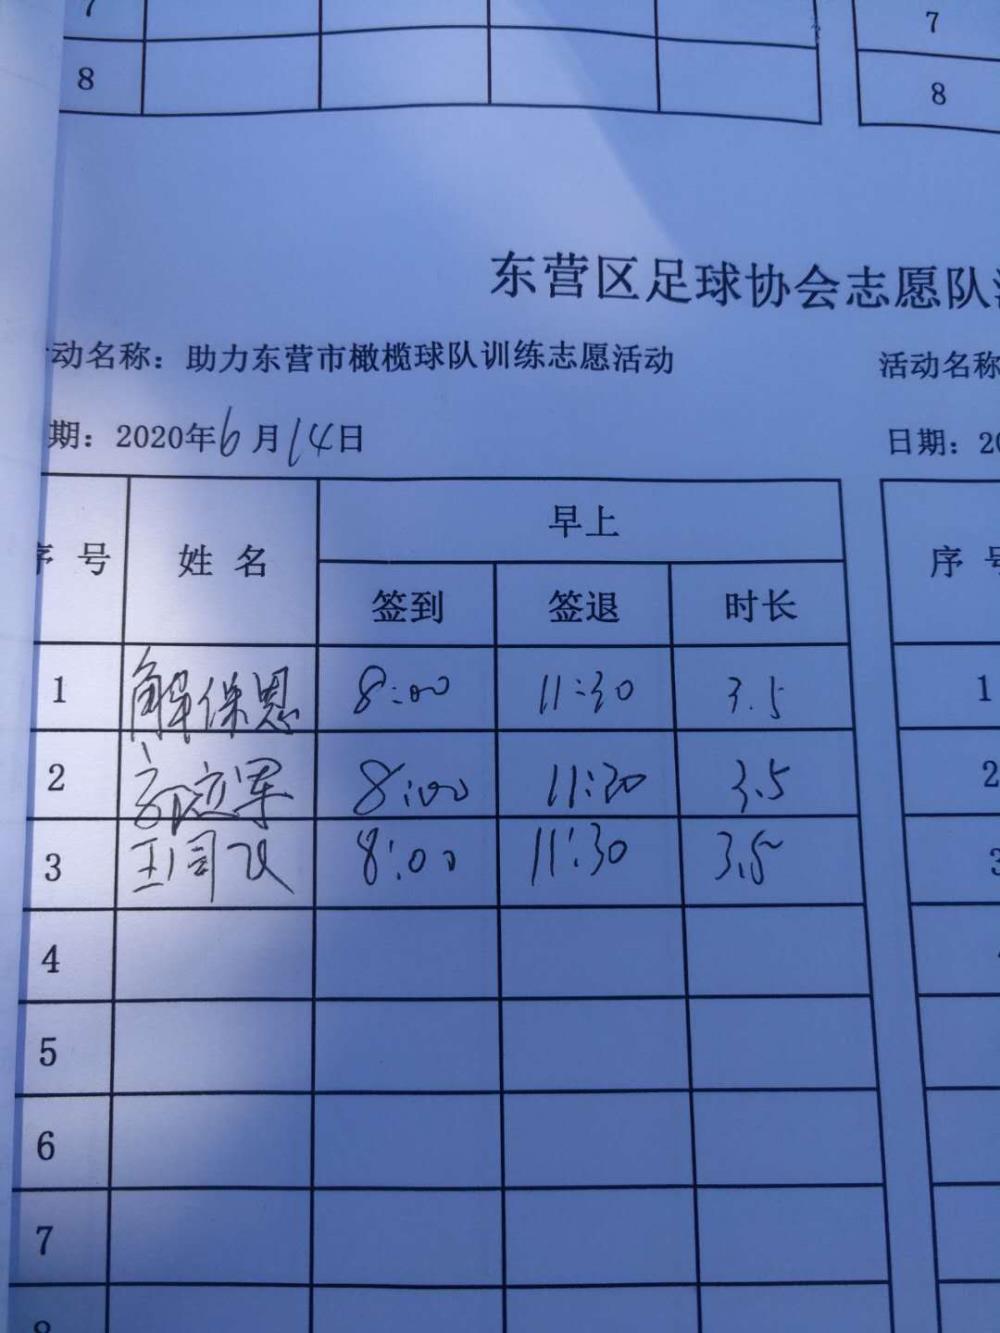 7
7
8
8
东营区足球协会志愿队
动名称：助力东营市橄榄球队训练志愿活动
活动名称
期：2020年6月14日
日期：20
序 号 姓 名 早上
签到 签退 时长
序 号
1 解保恩 8:00 11:30 3.5
1
2 8:00 11:30 3.5
2
3 8:00 11:30 3.5
3
4
5
6
7
8